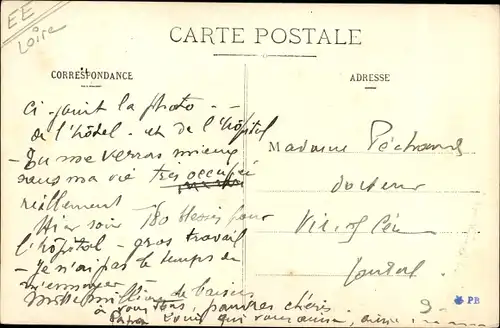 EE
Loire
CARTE POSTALE
CORRESPONDANCE
ADRESSE
Ci-joint la photo -
de l'hôtel - et de l'hôpital
- Tu me verras mieux
dans ma vie très occupée
réellement -
Hier soir 180 blessés pour
l'hôpital - gros travail
- Je n'ai pas le temps de
m'ennuyer
Mille millions de baisers
à vous tous, pauvres chéris.
qui vous aime,
Madame
Docteur
Vic s/ Cère
Cantal
PB